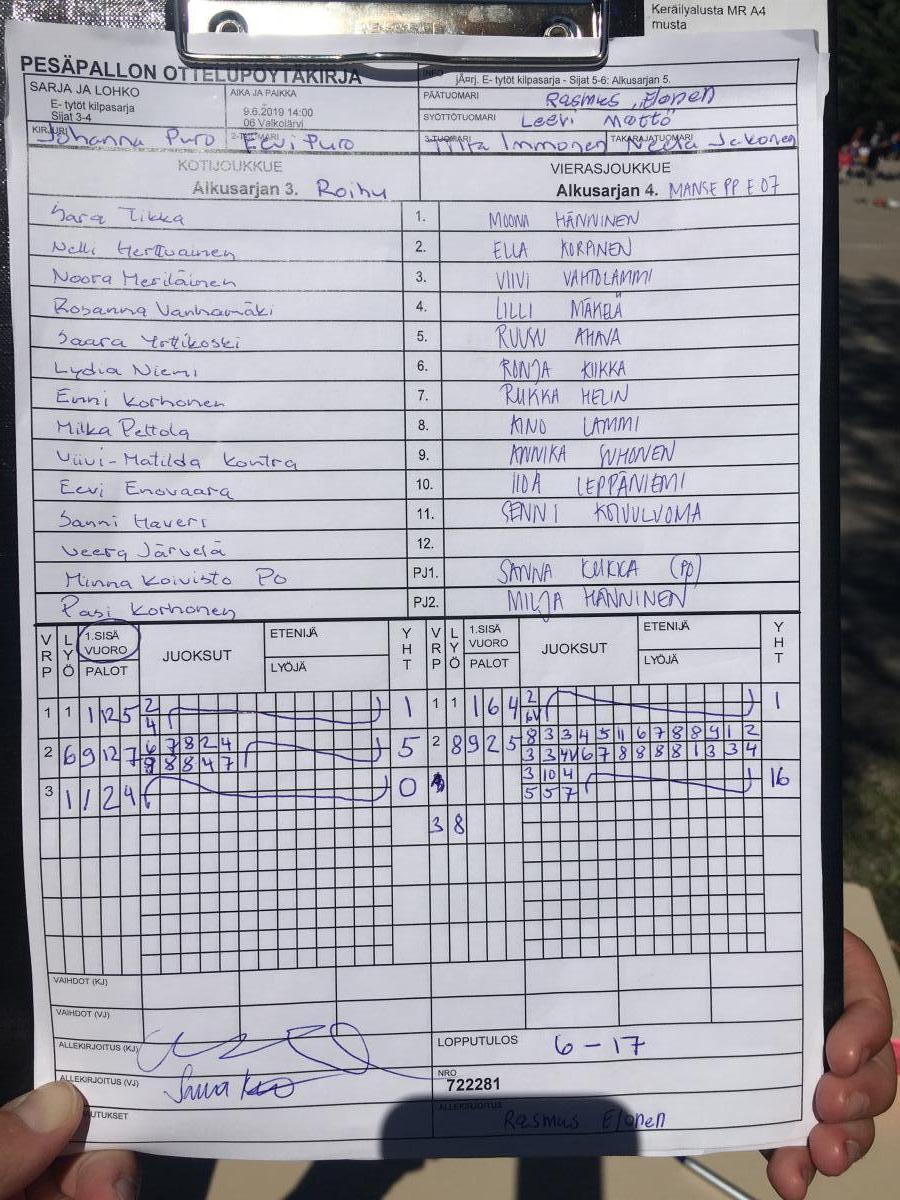 Keräilyalusta MR A4
musta
PESÄPALLON OTTELUPÖYTÄKIRJA
INFO
järj. E- tytöt kilpasarja - Sijat 5-6: Alkusarjan 5.
SARJA JA LOHKO
E- tytöt kilpasarja
Sijat 3-4
AIKA JA PAIKKA
9.6.2019 14:00
06 Valkolärvi
PÄÄTUOMARI Rasmus Elonen
SYÖTTÖTUOMARI Leevi Mättö
KIRJURI Johanna Puro
2-TUOMARI Eevi Puro
3-TUOMARI Immonen
TAKARAJATUOMARI Jokonen
KOTIJOUKKUE
Alkusarjan 3. Roihu
VIERASJOUKKUE
Alkusarjan 4. MANSE PP E 07
Sara Tikka 1. MOONA HÄNNINEN
Nelli Herttuainen 2. ELLA KORPINEN
Noora Meriläinen 3. VIIVI VAHTOLAMMI
Rosanna Vanhamäki 4. LILLI MÄKELÄ
Saara Yrttikoski 5. RUUSU AHAVA
Lydia Niemi 6. RONJA KIIKKA
Enni Korhonen 7. RUKKA HELIN
Milka Peltola 8. AINO LAMMI
Viivi-Matilda Kontra 9. ANNIKA SUHONEN
Eevi Enovaara 10. IIDA LEPPÄNIEMI
Sanni Haveri 11. SENNI KOIVULUOMA
Veera Järvelä 12.
Minna Koivisto PO PJ1. SANNA KUKKA (PO)
Pasi Korhonen PJ2. MILJA HÄNNINEN
VRP LYÖ 1.SISÄ VUORO PALOT JUOKSUT ETENIJÄ LYÖJÄ YHT VRP LYÖ 1.SISÄ VUORO PALOT JUOKSUT ETENIJÄ LYÖJÄ YHT
1 1 1 12 5 2 1 1 1 1 6 4 2 1
4 6V
2 6 9 12 7 6 7 8 2 4 5 2 8 9 2 5 8 3 3 4 5 11 6 7 8 8 9 1 2
9 8 8 4 7 3 3 4V 6 7 8 8 8 8 1 3 3 4
3 1 1 2 4 0 3 10 4 16
5 5 7
3 8
VAIHDOT (KJ)
VAIHDOT (VJ)
ALLEKIRJOITUS (KJ)
LOPPUTULOS 6 - 17
ALLEKIRJOITUS (VJ)
NRO
722281
ALLEKIRJOITUS
Rasmus Elonen